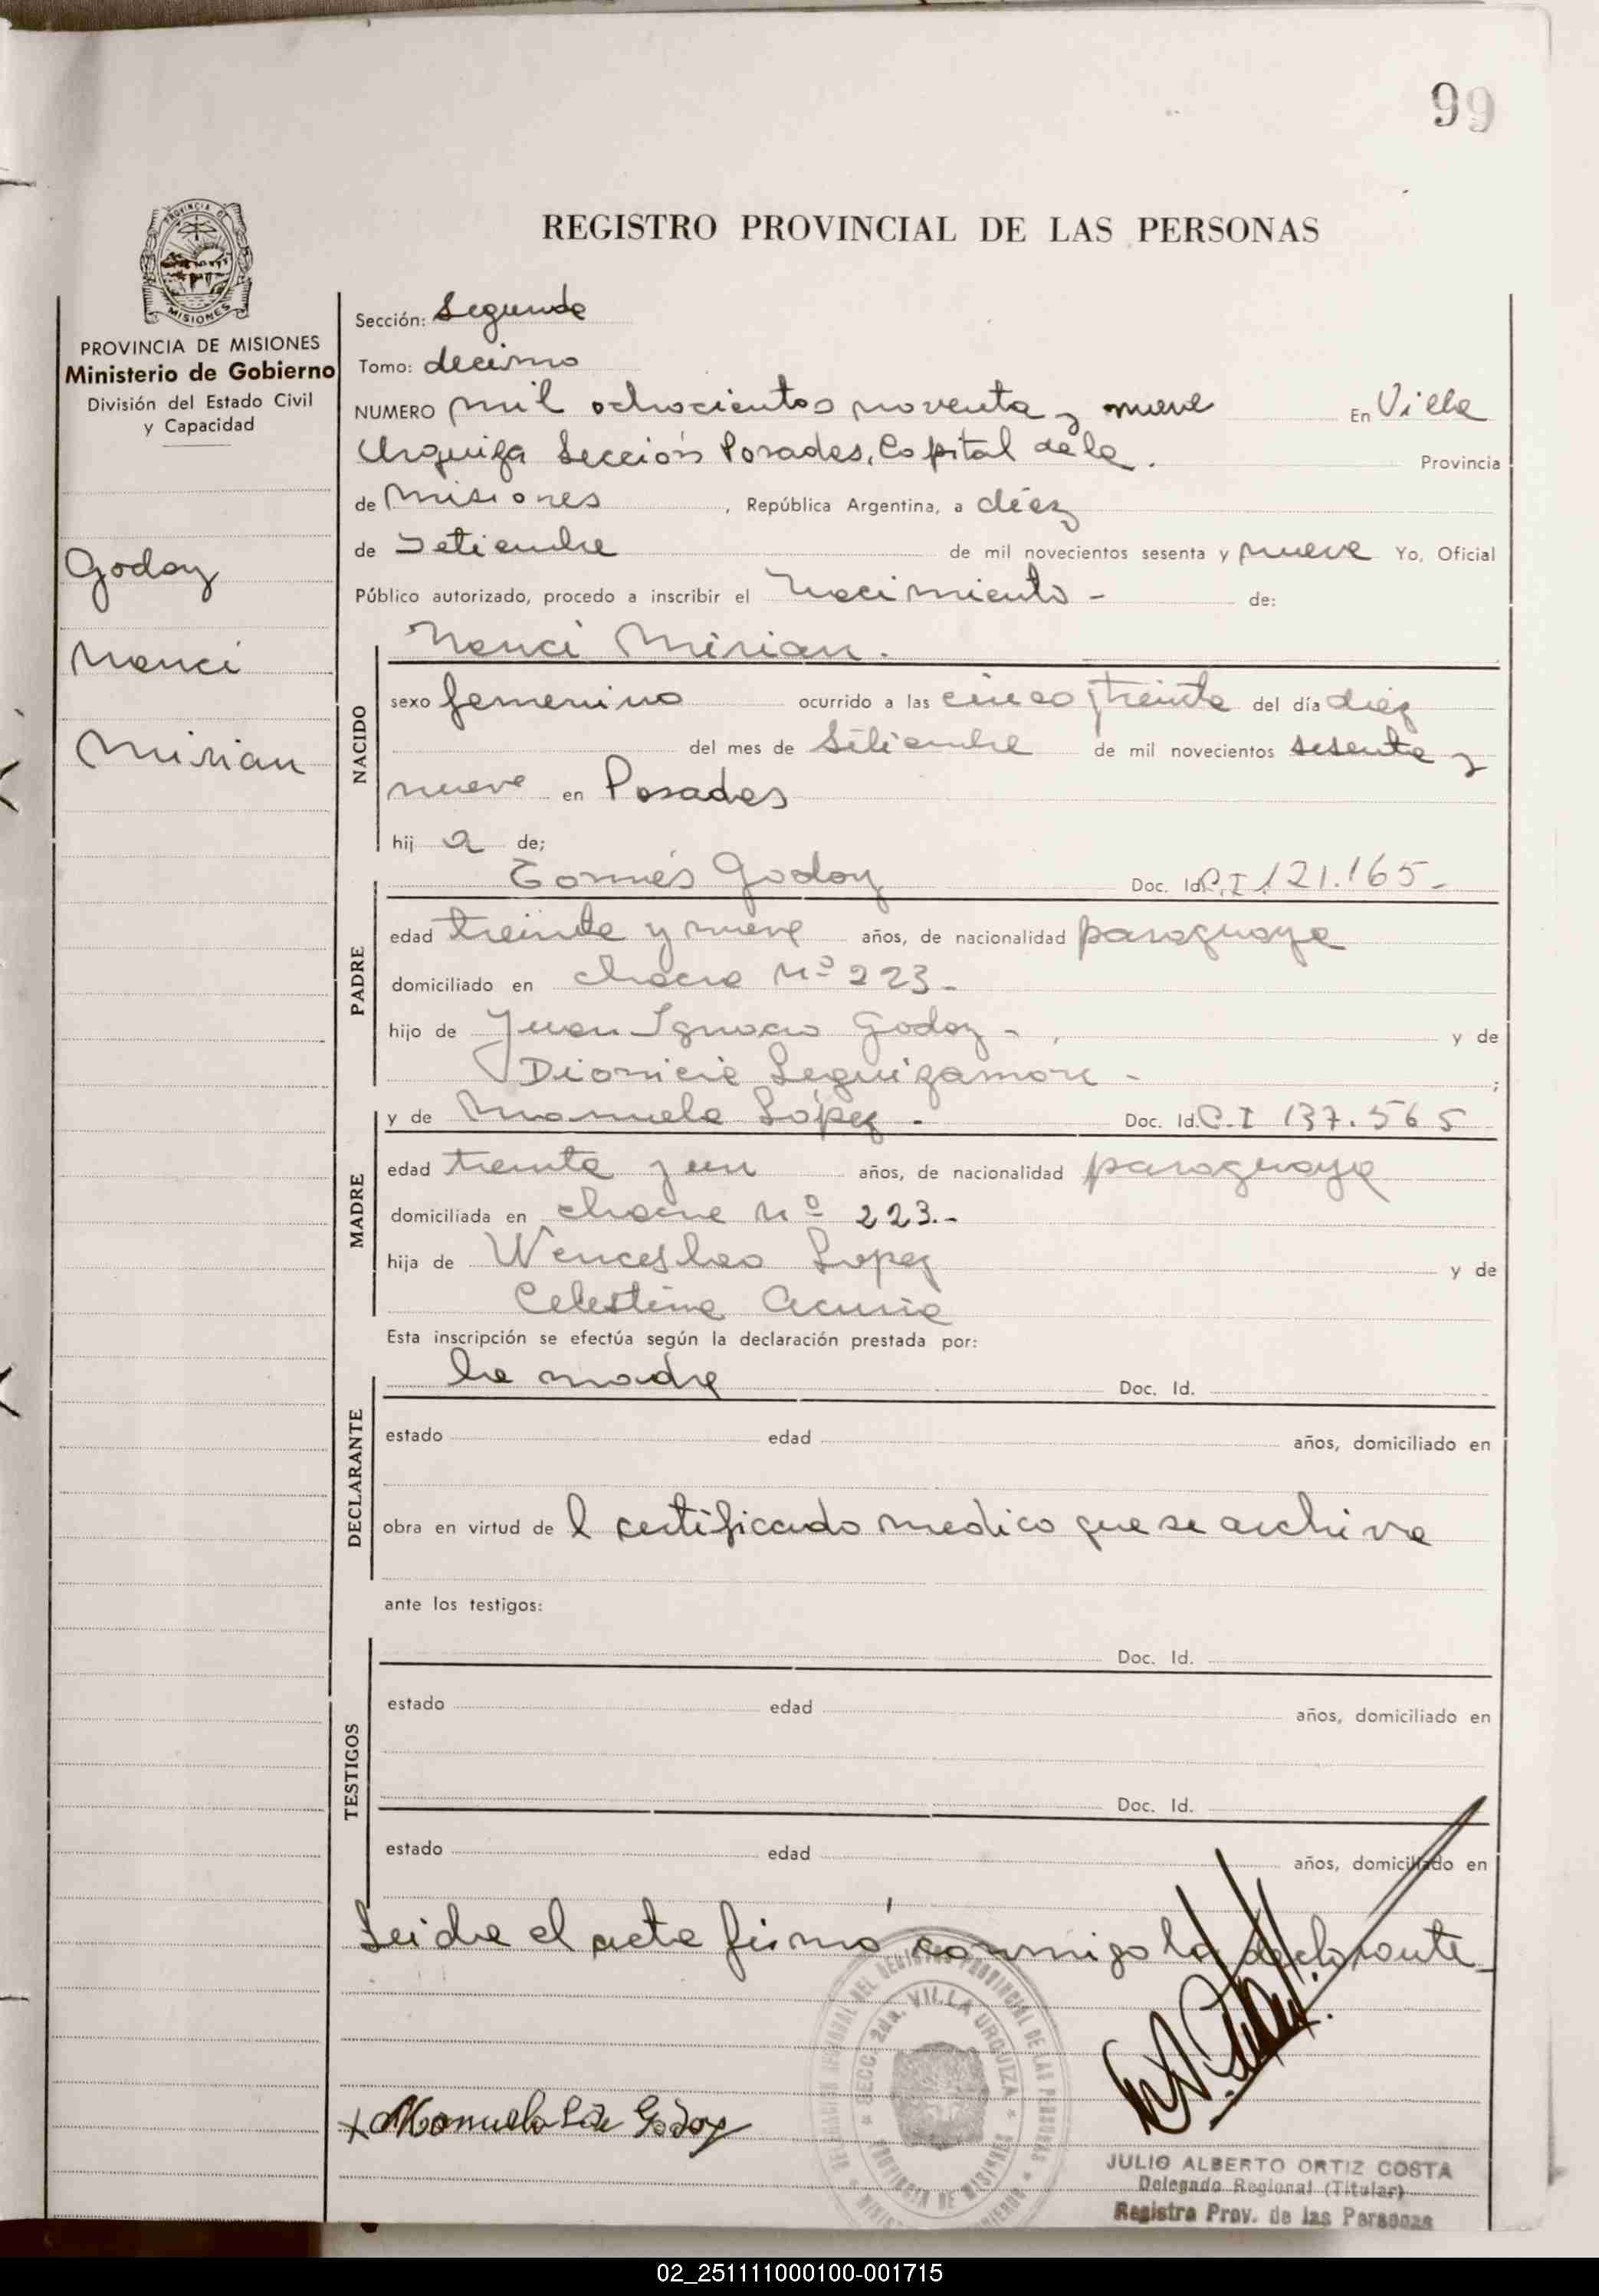 99
REGISTRO PROVINCIAL DE LAS PERSONAS
PROVINCIA DE
MISIONES
PROVINCIA DE MISIONES
Ministerio de Gobierno
División del Estado Civil
y Capacidad
Godoy
Nanci
Mirian
Sección: Segunda
Tomo: decimo
NUMERO mil ochocientos noventa y nueve En Villa
Urquiza Sección Posadas, Capital de la. Provincia
de Misiones , República Argentina, a diez
de Setiembre de mil novecientos sesenta y nueve Yo, Oficial
Público autorizado, procedo a inscribir el Nacimiento - de:
Nanci Mirian.
NACIDO
sexo femenino ocurrido a las cinco treinta del día diez
del mes de Setiembre de mil novecientos sesenta y
nueve en Posadas
hij a de;
PADRE
Tomás Godoy Doc. Id. C.I 121.165-
edad treinta y nueve años, de nacionalidad paraguaya
domiciliado en chacra Nº 223-
hijo de Juan Ignacio Godoy - , y de
Dionicia Leguizamon - ;
MADRE
y de Manuela López - Doc. Id. C.I 137.565
edad treinta y un años, de nacionalidad paraguaya
domiciliada en chacra Nº 223.-
hija de Wenceslao Lopez y de
Celestina Acuña
Esta inscripción se efectúa según la declaración prestada por:
DECLARANTE
la madre Doc. Id.
estado edad años, domiciliado en
obra en virtud de l certificado medico que se archiva
ante los testigos:
TESTIGOS
Doc. Id.
estado edad años, domiciliado en
Doc. Id.
estado edad años, domiciliado en
Leida el acta firmó conmigo la declarante
SECC. 2da. VILLA URQUIZA
PROVINCIA DE MISIONES
x Manuela L de Godoy
JULIO ALBERTO ORTIZ COSTA
Delegado Regional (Titular)
Registro Prov. de las Personas
02_251111000100-001715